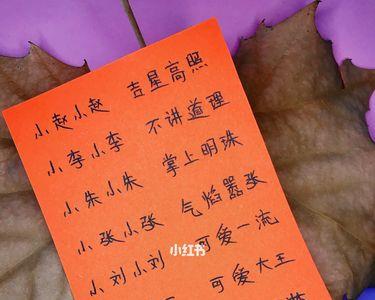 小赵小赵 吉星高照
小李小李 不讲道理
小朱小朱 掌上明珠
小张小张 气焰嚣张
小刘小刘 可爱一流
可爱大王
小红书